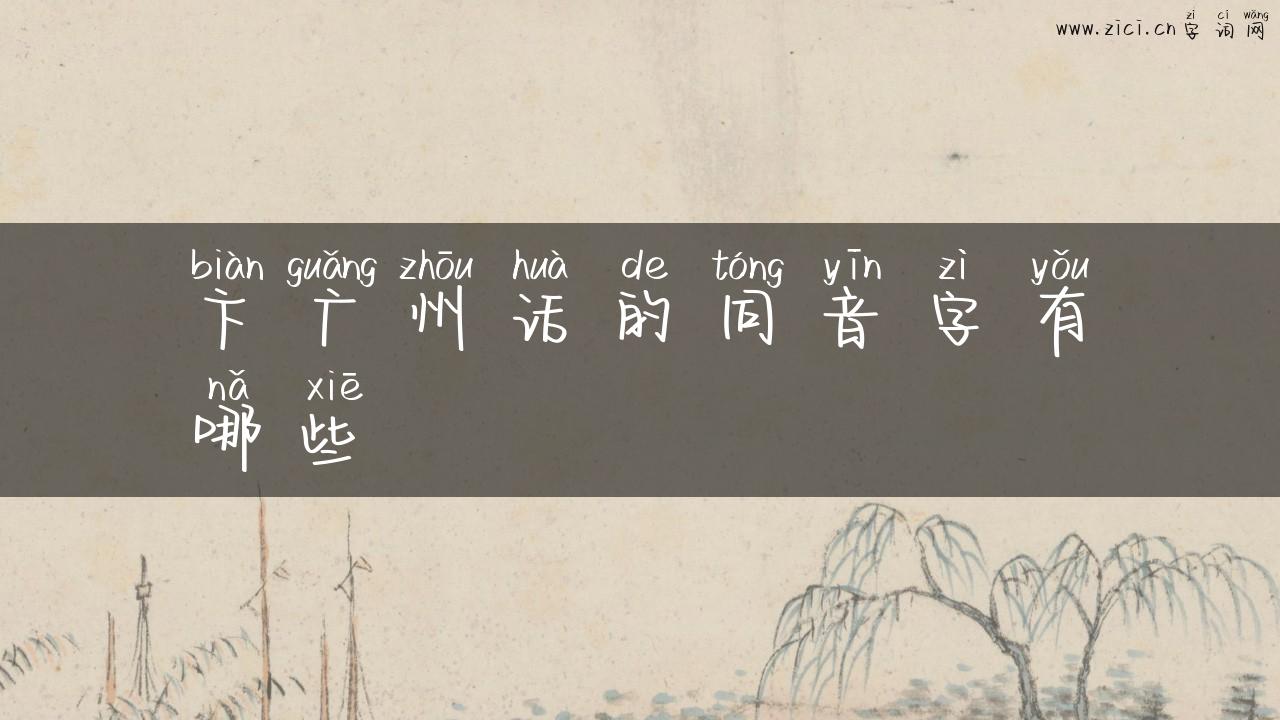 zì cí wǎng
www.zici.cn 字 词 网
biàn guǎng zhōu huà de tóng yīn zì yǒu
卞 广 州 话 的 同 音 字 有
nǎ xiē
哪 些